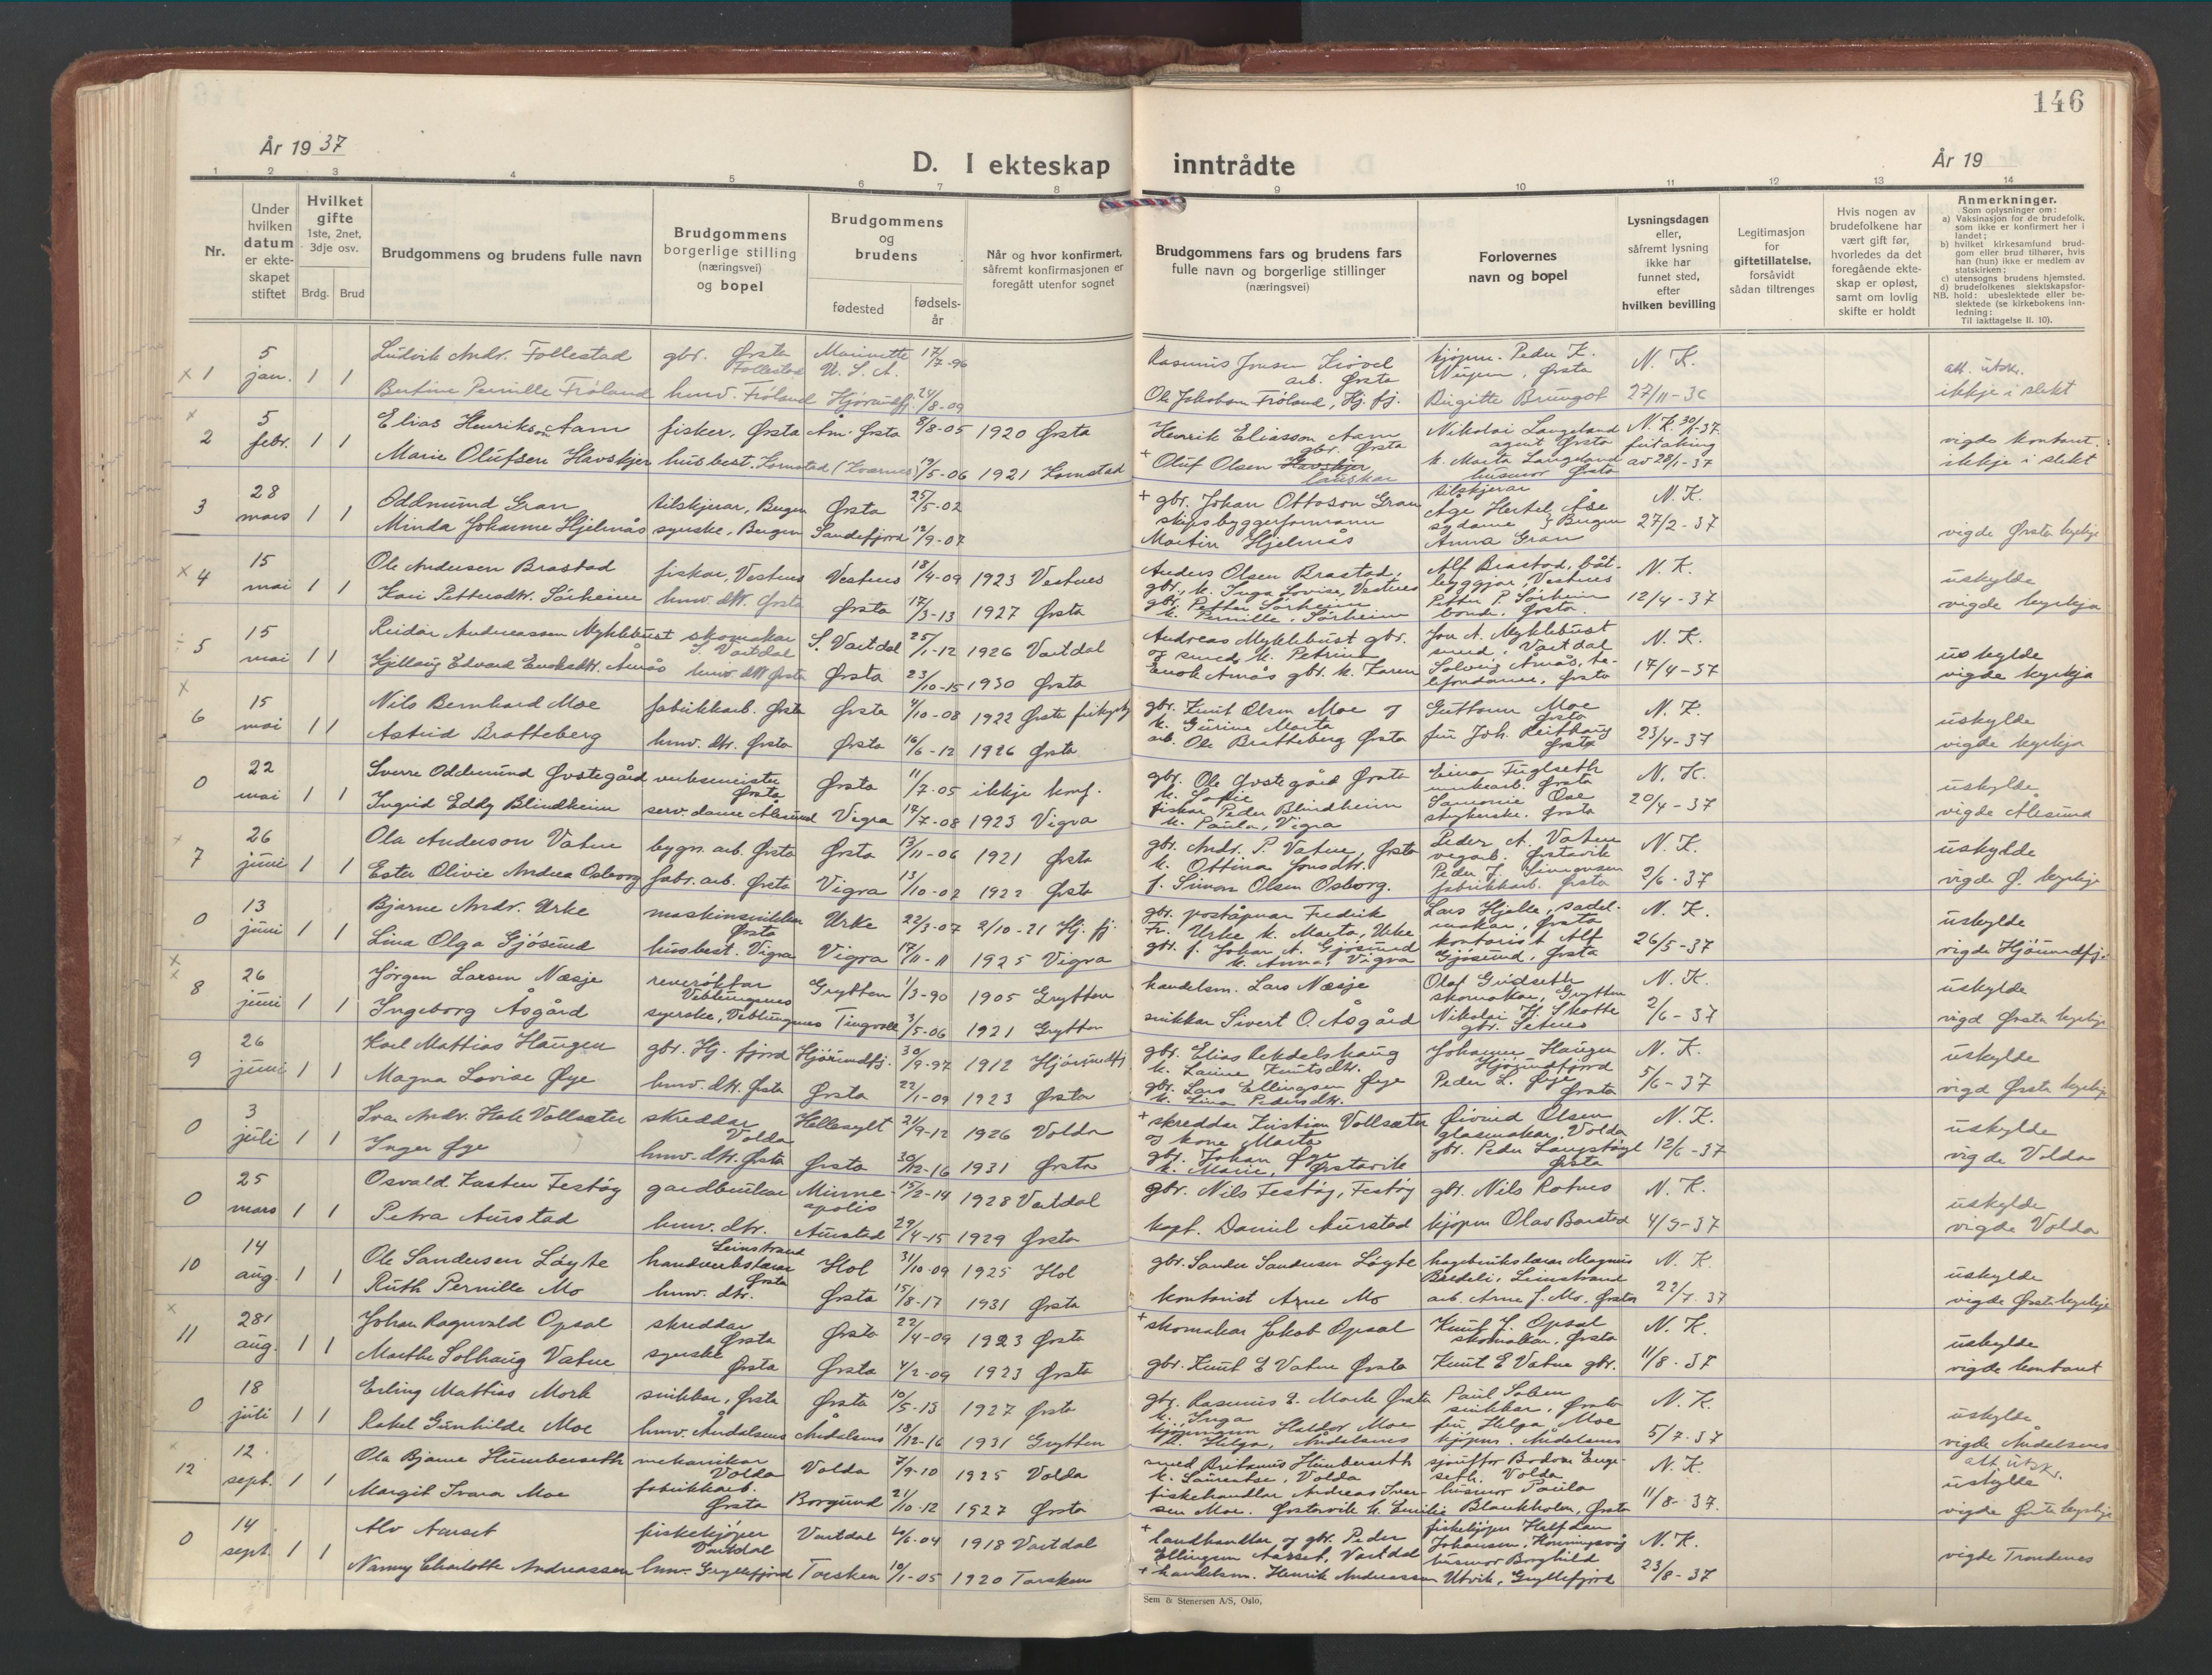 146
År 19 37
D. I ekteskap inntrådte
År 19
1 2 3 4 5 6 7 8 9 10 11 12 13 14
Nr.
Under hvilken datum er ekteskapet stiftet
Hvilket gifte 1ste, 2net, 3dje osv.
Brdg. Brud
Brudgommens og brudens fulle navn
Brudgommens borgerlige stilling (næringsvei) og bopel
Brudgommens og brudens
fødested
fødselsår
Når og hvor konfirmert, såfremt konfirmasjonen er foregått utenfor sognet
Brudgommens fars og brudens fars fulle navn og borgerlige stillinger (næringsvei)
Forlovernes navn og bopel
Lysningsdagen eller, såfremt lysning ikke har funnet sted, efter hvilken bevilling
Legitimasjon for giftetillatelse, forsåvidt sådan tiltrenges
Hvis nogen av brudefolkene har vært gift før, hvorledes da det foregående ekteskap er opløst, samt om lovlig skifte er holdt
Anmerkninger.
Som oplysninger om:
a) Vaksinasjon for de brudefolk, som ikke er konfirmert her i landet;
b) hvilket kirkesamfund brudgom eller brud tilhører, hvis han (hun) ikke er medlem av statskirken;
c) utensogns brudens hjemsted.
d) brudefolkenes slektskapsforhold: ubeslektede eller beslektede (se kirkebokens innledning:
NB.
Til iakttagelse II. 10).
x 1 5 jan. 1 1 Ludvik Andr. Follestad gbr. Ørsta Follestad U. S. A. 17/7-96 Rasmus arb. Ørsta kjøpm. Peder K. Ørsta N. K. att. utskr.
Bertine Pernille Fröland huv. Fröland Hjørundfj. 24/8-09 Ole Jakobsen Fröland, Hj. fj. Birgitte Brungot 27/11-36 ikkje i slekt
x 2 5 febr. 1 1 Elias Henrikson Aam fisker, Ørsta Åm. Ørsta 8/8-05 1920 Ørsta Henrik Eliasson Aam gbr. Ørsta Nikolai Langeland agent Ørsta N. K. 30/1-37 vigde kontant.
Marie Olufsen Havskjer husbest. Kornstad 19/5-06 1921 Kornstad + Oluf Olsen k. Marta Langeland husmor Ørsta fritaking av 28/1-37 ikkje i slekt
3 28 mars 1 1 Oddmund Gran tilskjerar, Bergen Ørsta 25/5-02 + gbr. Johan Ottoson Gran tilskjerar Åge Hertel Åse N. K.
Minda Johanne Hjelmås syerske, Bergen Sandefjord 12/9-07 skipsbyggerformann Martin Hjelmås sydame Bergen Anna Gran 27/2-37 vigde Ørsta kyrkje
x 4 15 mai 1 1 Ole Andersen Brastad fiskar, Vestnes Vestnes 18/4-09 1923 Vestnes Anders Olsen Brastad, gbr., k. Inga Lovise, Vestnes Alf Brastad, båtbyggjar, Vestnes N. K. uskylde
Kari Pettersdtr. Sørheim huv. dtr. Ørsta Ørsta 17/3-13 1927 Ørsta gbr. Petter Sørheim k. Pernille, Sørheim Petter P. Sørheim bonde, Ørsta. 12/4-37 vigde kyrkja
5 15 mai 1 1 Reidar Andreassen Myklebust skomakar S. Vartdal S. Vartdal 25/1-12 1926 Vartdal Andreas Myklebust gbr. og smed, k. Petrina Jon A. Myklebust smed, Vartdal N. K. uskylde
Hjellaug Edvard Enoksdtr. Åmås huv. dtr Ørsta Ørsta 23/10-15 1930 Ørsta Enok Åmås gbr. k. Karen Solveig Åmås, telefondame, Ørsta 17/4-37 vigde kyrkja
x 6 15 mai 1 1 Nils Bernhard Moe fabrikkarb. Ørsta Ørsta 4/10-08 1922 Ørsta frikyrkj gbr. Knut Olsen Moe og k. Gurine Marta Guttorm Moe Ørsta N. K. uskylde
Astrid Bratteberg huv. dtr. Ørsta Ørsta 16/6-12 1926 Ørsta arb. Ole Bratteberg Ørsta fru Joh. Reithaug Ørsta 23/4-37 vigde kyrkja
0 22 mai 1 1 Sverre Oddmund Øvstegård verksmeister Ørsta Ørsta 11/7-05 ikkje konf. gbr. Ole Øvstegård Ørsta k. Sofie Einar Fuglseth Ørsta N. K. uskylde
Ingrid Eddy Blindheim serv. dame Ålesund Vigra 17/7-08 1923 Vigra fiskar Peder Blindheim k. Paula, Vigra strykerske, Ørsta 20/4-37 vigde Ålesund
x 7 26 juni 1 1 Ola Anderson Vatne bygn. arb. Ørsta Ørsta 13/11-06 1921 Ørsta gbr. Andr. P. Vatne, Ørsta k. Ottina Jonsdtr. Peder A. Vatne vegarb. Ørstavik N. K. uskylde
Ester Olivie Andrea Osborg fabr. arb. Ørsta Vigra 13/10-02 1922 Ørsta f. Simon Olsen Osborg. Peder J. Simonsen fabrikkarb. Ørsta 2/6-37 vigde Ø. kyrkje
0 13 juni 1 1 Bjarne Andr. Urke maskinsnikker Ørsta Urke 22/3-07 2/10-21 Hj. fj. gbr. poståpnar Fredrik Fr. Urke k. Marta, Urke Lars Hjelle, sadelmakar, Ørsta N. K. uskylde
Lina Olga Gjøsund husbest. Vigra Vigra 17/11-11 1925 Vigra gbr. f. Johan A. Gjøsund k. Anna, Vigra kontorist Alf Gjøsund, Ørsta 26/5-37 vigde Hjørundfj.
x x 8 26 juni 1 1 Jørgen Larsen Næsje reverøktar Veblungsnes Grytten 1/3-90 1905 Grytten handelsm. Lars Næsje Olaf Gridseth skomakar, Grytten N. K. uskylde
Ingeborg Åsgård syerske, Veblungsnes Tingvoll 3/5-06 1921 Grytten snikkar Sivert O. Åsgård Nikolai H. Skotte gbr. Setnes 2/6-37 vigd Ørsta kyrkje
9 26 juni 1 1 Karl Mattias Haugen gbr. Hj. fjord Hjørundfj. 30/9-97 1912 Hjørundfj gbr. Elias Rekdalshaug k. Laura Knutsdtr. Johanne Haugen Hjørundfjord N. K. uskylde
Magna Lovise Øye huv. dtr. Ørsta Ørsta 22/1-09 1923 Ørsta gbr. Lars Ellingsen Øye k. Lina Pedersdtr. Peder L. Øye Ørsta 5/6-37 vigd Ørsta kyrkje
0 3 juli 1 1 Ivar Andr. Hole Vollsæter skreddar Volda Hellesylt 21/9-12 1926 Volda + skreddar Kristian Vollsæter og kone Marta Øivind Olsen glasmakar, Volda N. K. uskylde
Inger Øye huv. dtr. Ørsta Ørsta 30/12-16 1931 Ørsta gbr. Johan Øye k. Marie, Ørstavik gbr. Peder Langstøyl Ørsta 12/6-37 vigde Volda
0 25 mars 1 1 Osvald Karsten Festøy gardbrukar Minneapolis 15/2-14 1928 Vartdal gbr. Nils Festøy, Festøy gbr. Nils Rotnes N. K. uskylde
Petra Aurstad huv. dtr. Aurstad 29/4-15 1929 Ørsta kapt. Daniel Aurstad kjøpm Olav Barstad 4/3-37 vigde Volda
10 14 aug. 1 1 Ole Sandersen Løyte handverkslærar Leinstrand Hol 31/10-09 1925 Hol gbr. Sander Sandersen Løyte hagebrukslærar Magnus Bredeli, Leinstrand N. K. uskylde
Ruth Pernille Mo huv. dtr. Ørsta Ørsta 15/8-17 1931 Ørsta kontorist Arne Mo arb. Arne J. Mo. Ørsta 22/7.37 vigde Ørsta kyrkje
x 11 28 aug. 1 1 Johan Ragnvald Opsal skreddar Ørsta Ørsta 22/4-09 1923 Ørsta + skomakar Jakob Opsal Knut J. Opsal skomakar, Ørsta N. K. uskylde
Marthe Solhaug Vatne syerske Ørsta Ørsta 4/2-09 1923 Ørsta gbr. Knut E Vatne Ørsta Knut E Vatne gbr. 11/8-37 vigde kontort
0 18 juli 1 1 Erling Mattias Mork snikkar, Ørsta Ørsta 10/5-13 1927 Ørsta gbr. Rasmus E. Mork Ørsta k. Inga Paul snikkar, Ørsta N. K. uskylde
Rakel Gunhilde Moe huv. Åndalsnes Åndalsnes 18/12-16 1931 Grytten kjøpmann Halvor Moe k. Helga, Åndalsnes fru Helga Moe kjøpm. Åndalsnes 5/7.37 vigde Åndalsnes
x 12 12. sept. 1 1 Ola Bjarne Humberseth mekanikar Volda Volda 7/9-10 1925 Volda smed Humberseth k. Laurentse, Volda sjåffør Engeseth. Volda N. K. att. utskr. uskylde
Margit Ivara Moe fabrikkarb. Ørsta Borgund 21/10-12 1927 Ørsta fiskehandlar Andreas Iversen Moe. Ørstavik k. Emilie husmor Paula Blankholm, Ørsta 11/8-37. vigde Ørsta kyrkje
0 14 sept. 1 1 Alv Aarset fiskekjøper Vartdal Vartdal 1918 Vartdal + landhandlar og gbr. Peder Ellingsen Aarset, Vartdal fiskekjøper Halfdan Johansen, Honningsvåg N. K. vigde Trondenes
Nanny Charlotte Andreassen huv. Gryllefjord Torsken 10/1-05 1920 Torsken + handelsm. Henrik Andreassen husmor Borghild Utvik, Gryllefjord 23/8-37
Sem & Stenersen A/S, Oslo.